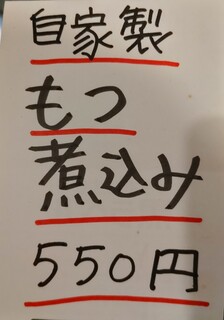 自家製
もつ
煮込み
550円